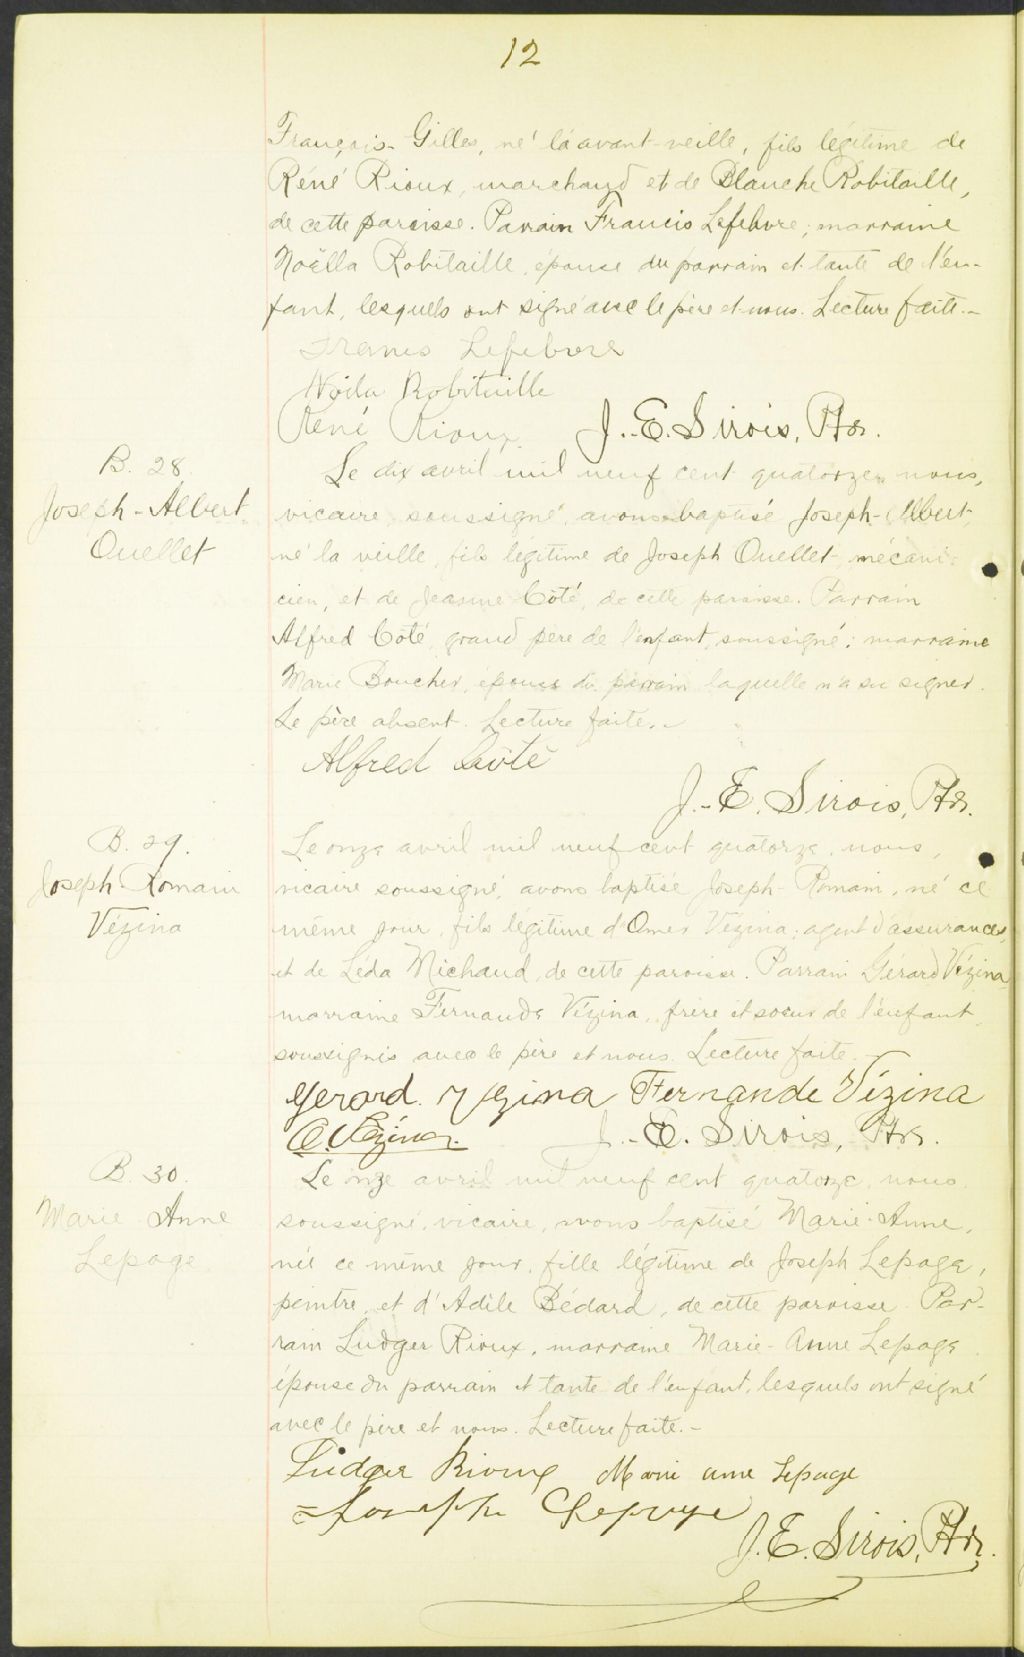 12
François-Gilles, né l'avant-veille, fils légitime de
Réné Rioux, marchand et de Blanche Robitaille,
de cette paroisse. Parrain Francis Lefebvre; marraine
Noëlla Robitaille, épouse du parrain et tante de l'en-
fant, lesquels ont signé avec le père et nous. Lecture faite.-
Francis Lefebvre
Noëla Robitaille
René Rioux J.-E. Sirois, Ptr.
B. 28.
Joseph-Albert
Ouellet
Le dix avril mil neuf cent quatorze nous,
vicaire soussigné, avons baptisé Joseph-Albert,
né la veille, fils légitime de Joseph Ouellet, mécani-
cien, et de Jeanne Côté, de cette paroisse. Parrain
Alfred Côté, grand père de l'enfant, soussigné; marraine
Marie Boucher, épouse du parrain laquelle n'a su signer.
Le père absent. Lecture faite.-
Alfred Côté
J.-E. Sirois, Ptr.
B. 29.
Joseph-Romain
Vézina
Le onze avril mil neuf cent quatorze, nous,
vicaire soussigné, avons baptisé Joseph-Romain, né ce
même jour, fils légitime d'Omer Vézina, agent d'assurances,
et de Léda Michaud, de cette paroisse. Parrain Gérard Vézina,
marraine Fernande Vézina, frère et soeur de l'enfant,
soussignés avec le père et nous. Lecture faite.-
Gerard Vezina Fernande Vézina
O. Vézina. J.-E. Sirois, Ptr.
B. 30.
Marie-Anne
Lepage
Le onze avril mil neuf cent quatorze, nous
soussigné, vicaire, avons baptisé Marie-Anne,
née ce même jour, fille légitime de Joseph Lepage,
peintre, et d'Adèle Bédard, de cette paroisse. Par-
rain Ludger Rioux, marraine Marie-Anne Lepage
épouse du parrain et tante de l'enfant, lesquels ont signé
avec le père et nous. Lecture faite.-
Ludger Rioux Marie anne Lepage
Joseph Lepage
J.E. Sirois, Ptr.